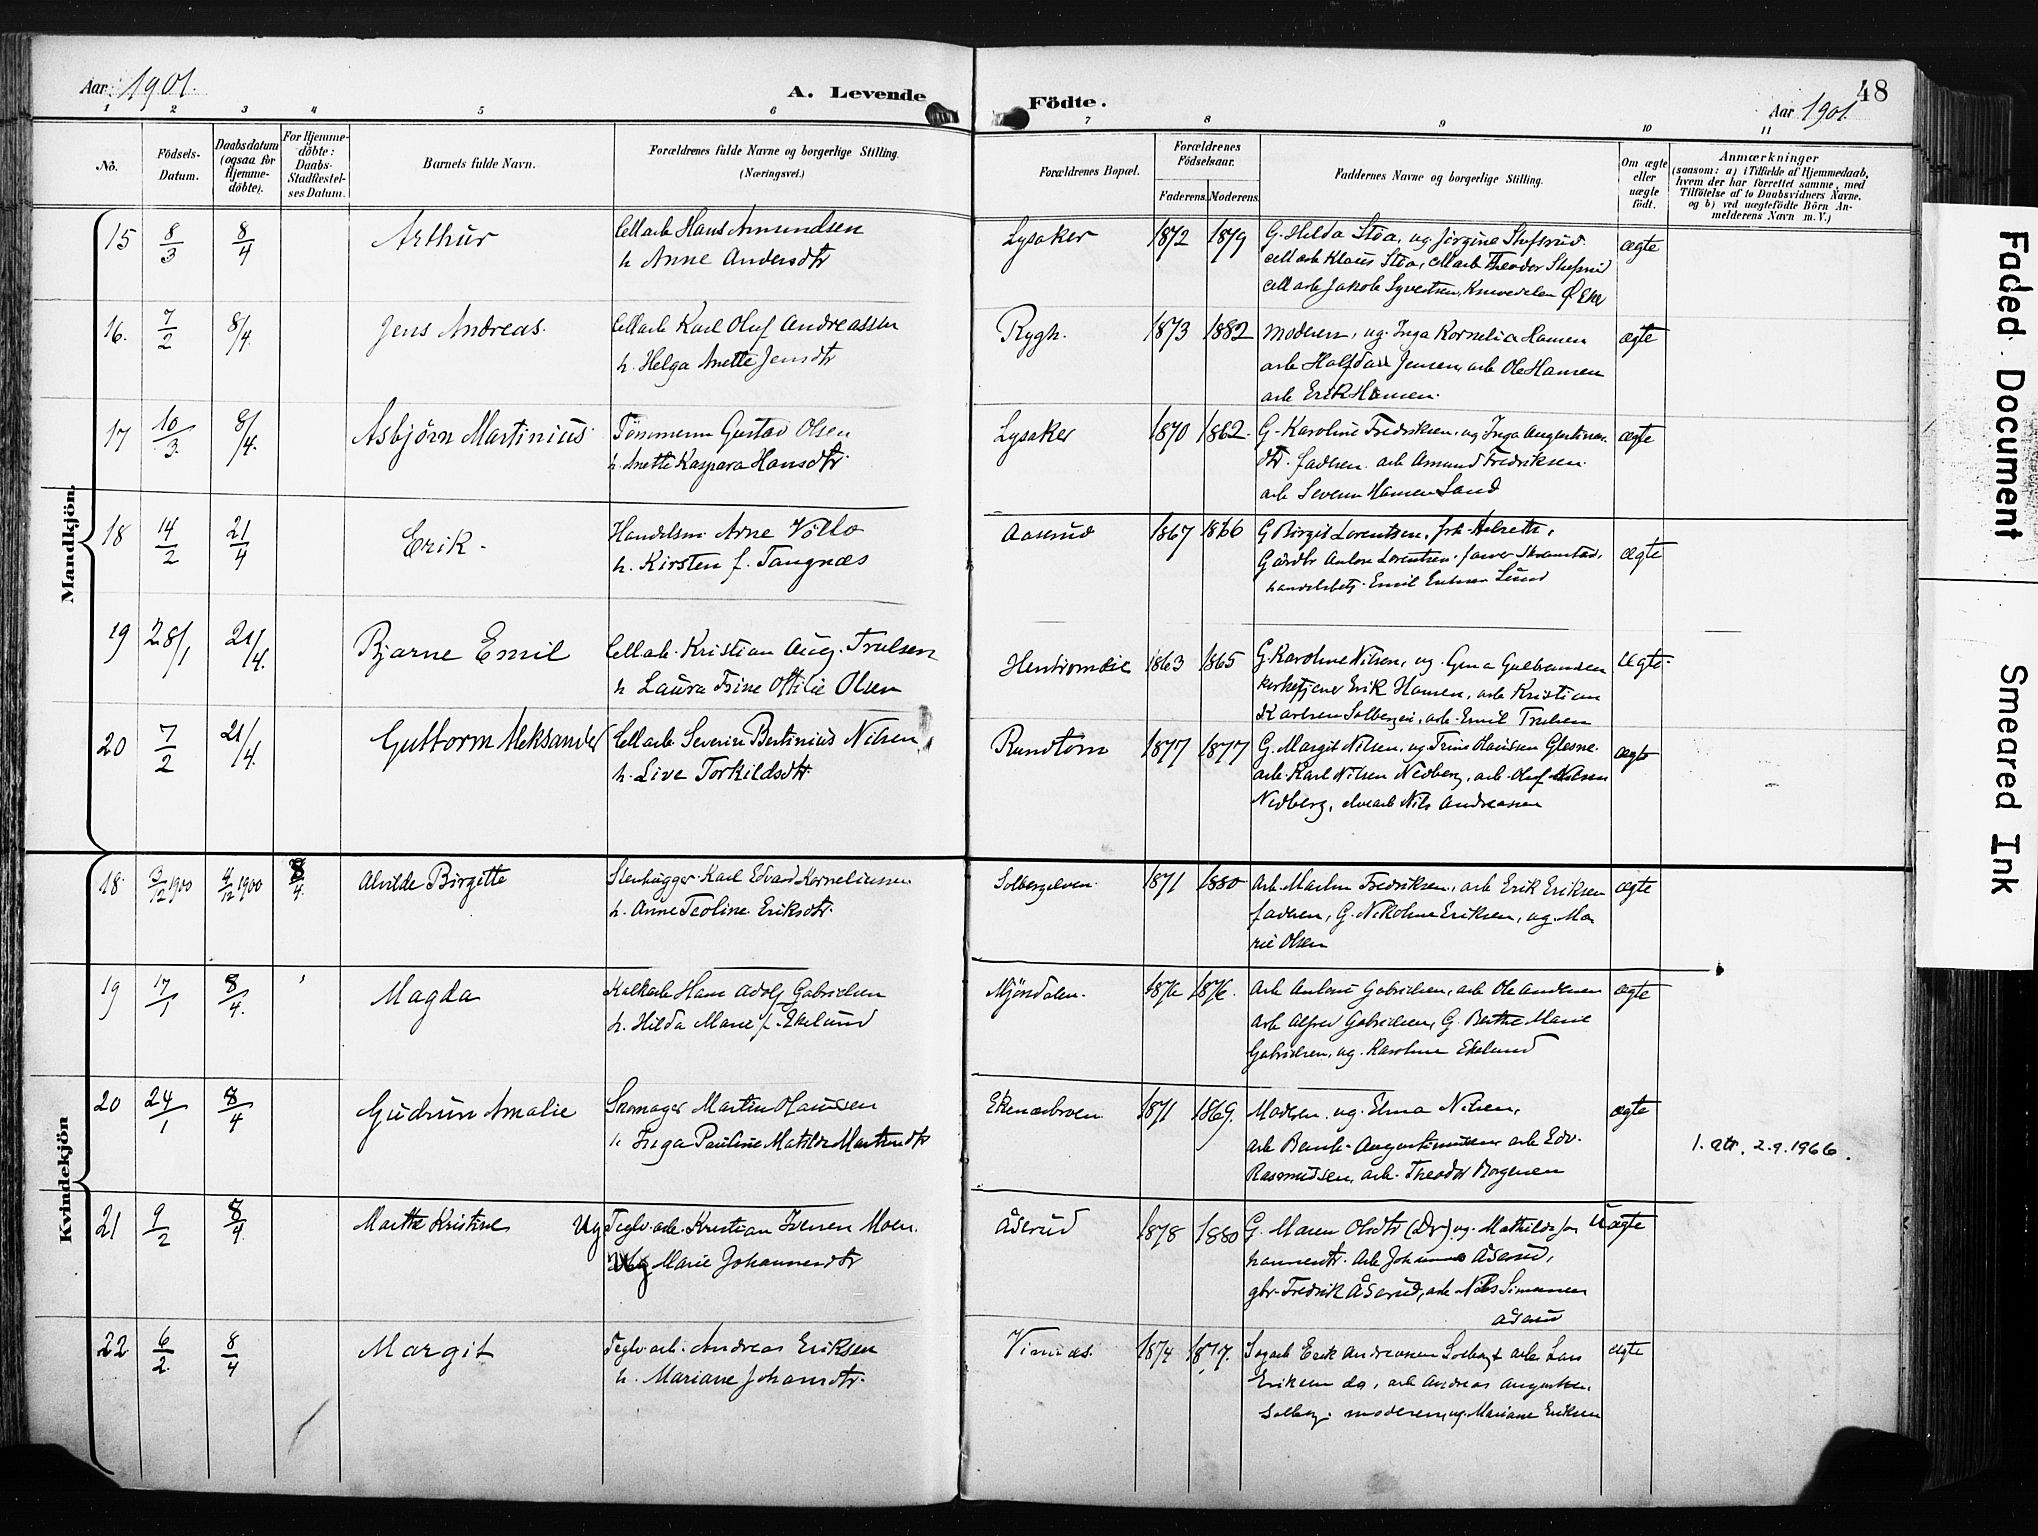 Aar 1901.
A. Levende Födte.
Aar 1901
48
1 2 3 4 5 6 7 8 9 10 11
No.
Födsels-Datum.
Daabsdatum (ogsaa for Hjemme-döbte).
For Hjemme-döbte: Daabs-Stadfæstel-ses Datum.
Barnets fulde Navn.
Forældrenes fulde Navne og borgerlige Stilling.
(Næringsvei.)
Forældrenes Bopæl.
Forældrenes Födselsaar.
Faderens. Moderens.
Faddernes Navne og borgerlige Stilling.
Om ægte eller uægte födt.
Anmærkninger
(saasom: a) i Tilfælde af Hjemmedaab,
hvem der har forrettet samme, med
Tilföielse af to Daabsvidners Navne,
og b) ved uægtefödte Börn An-
melderens Navn m. V.)
Mandkjön.
15 8/3 8/4 Arthur
Cellarb Hans Amundsen
h. Anne Andersdtr
Lysaker 1872 1879
G. Hilda Stöa, ug Jörgine
cellarb Klaus Stöa, cellarb Theodor
cellarb Jakob
ægte
16. 7/2 8/4. Jens Andreas.
Cellarb Karl Oluf Andreassen
h. Helga Anette Jensdtr
Rygh. 1873 1882
Moderen, ug. Inga Kornelia Hansen
arb Halfdan Jensen, arb Ole Hansen
arb Erik Hansen.
ægte
17 10/3. 8/4. Asbjørn Martinius
Tömmerm Gustav Olsen
h. Anette Kaspara Hansdtr.
Lysaker 1870 1862.
G. Karoline Fredriksen, ug Inga
dtr. faderen. arb Amund Fredriksen.
arb Severin Hansen Sand
ægte
18 14/2 21/4 Erik.
Handelsm Arne Vollo
h. Kirsten f. Tangnæs
Aaserud 1867 1866
G Birgit Lorentsen, frk
Gårdbr Anton Lorentsen
handelsbetj. Emil Lund
ægte
19 28/1 21/4. Bjarne Emil
Cellarb. Kristian Aug. Trulsen
h Laura Trine Ottilie Olsen
1863 1865
G. Karoline Nilsen, ug. Gina Gulbrandsen
kirketjener Erik Hansen, arb Kristian
Karlsen Solberg, arb. Emil Trulsen
ægte.
20 7/2 21/4. Guttorm Aleksander
Cellarb. Severin Bertinius Nilsen.
h. Live Torkildsdtr.
Rundtom 1877 1877
G. Margit Nilsen, ug Trine Hansen Glesne.
arb. Karl Nilsen Nedberg, arb. Oluf Nilsen
Nedberg, elvearb Nils Andreassen
ægte
Kvindekjön
18. 3/12 1900 4/12 1900 8/4. Alvilde Birgitte
Stenhugger Karl Edvard Korneliussen
h. Anne Teoline Eriksdtr.
Solbergelven. 1871 1880
Arb. Martin Fredriksen, arb Erik Eriksen
faderen, G. Nikoline Eriksen, ug. Ma
rie Olsen
ægte
19 17/1 8/4. Magda
Kalkarb Hans Adolf Gabrielsen
h. Hilda Marie f. Ekelund
Mjöndalen. 1876 1876.
Arb Anton Gabrielsen, arb Ole Andersen
Arb Alfred Gabrielsen, G. Berthe Marie
Gabrielsen, ug. Karoline Ekelund
ægte
20 24/1 8/4 Gudrun Amalie
Skomager Martin Hansen
h Inga Pauline Matilde Martinsdtr
1871 1869.
Moderen. ug. Elma Nilsen,
arb Bernh. Augustinussen arb Edv.
Rasmussen, arb. Theodor Borgersen
ægte
1. atr. 2.9.1966.
21 9/2 8/4 Marthe Kristine
Ug Teglv.arb. Kristian Iversen Moen.
Ug Marie Johannesdtr
Åserud 1878 1880
G. Maren Olsdtr ug. Mathilde Jo
hannesdtr. arb Johannes Åserud,
gbr. Fredrik Åserud, arb Nils Simensen
Åserud
Uægte
22 6/2. 8/4 Margit
Teglv.arb. Andreas Eriksen
h. Mariane Johansdtr.
Vinnæs. 1874 1877.
Sagarb Erik Andreassen Solberg arb Lars
Eriksen do, arb Andreas
Solberg. moderen, ug. Mariane Eriksen
ægte
Faded Document
Smeared Ink